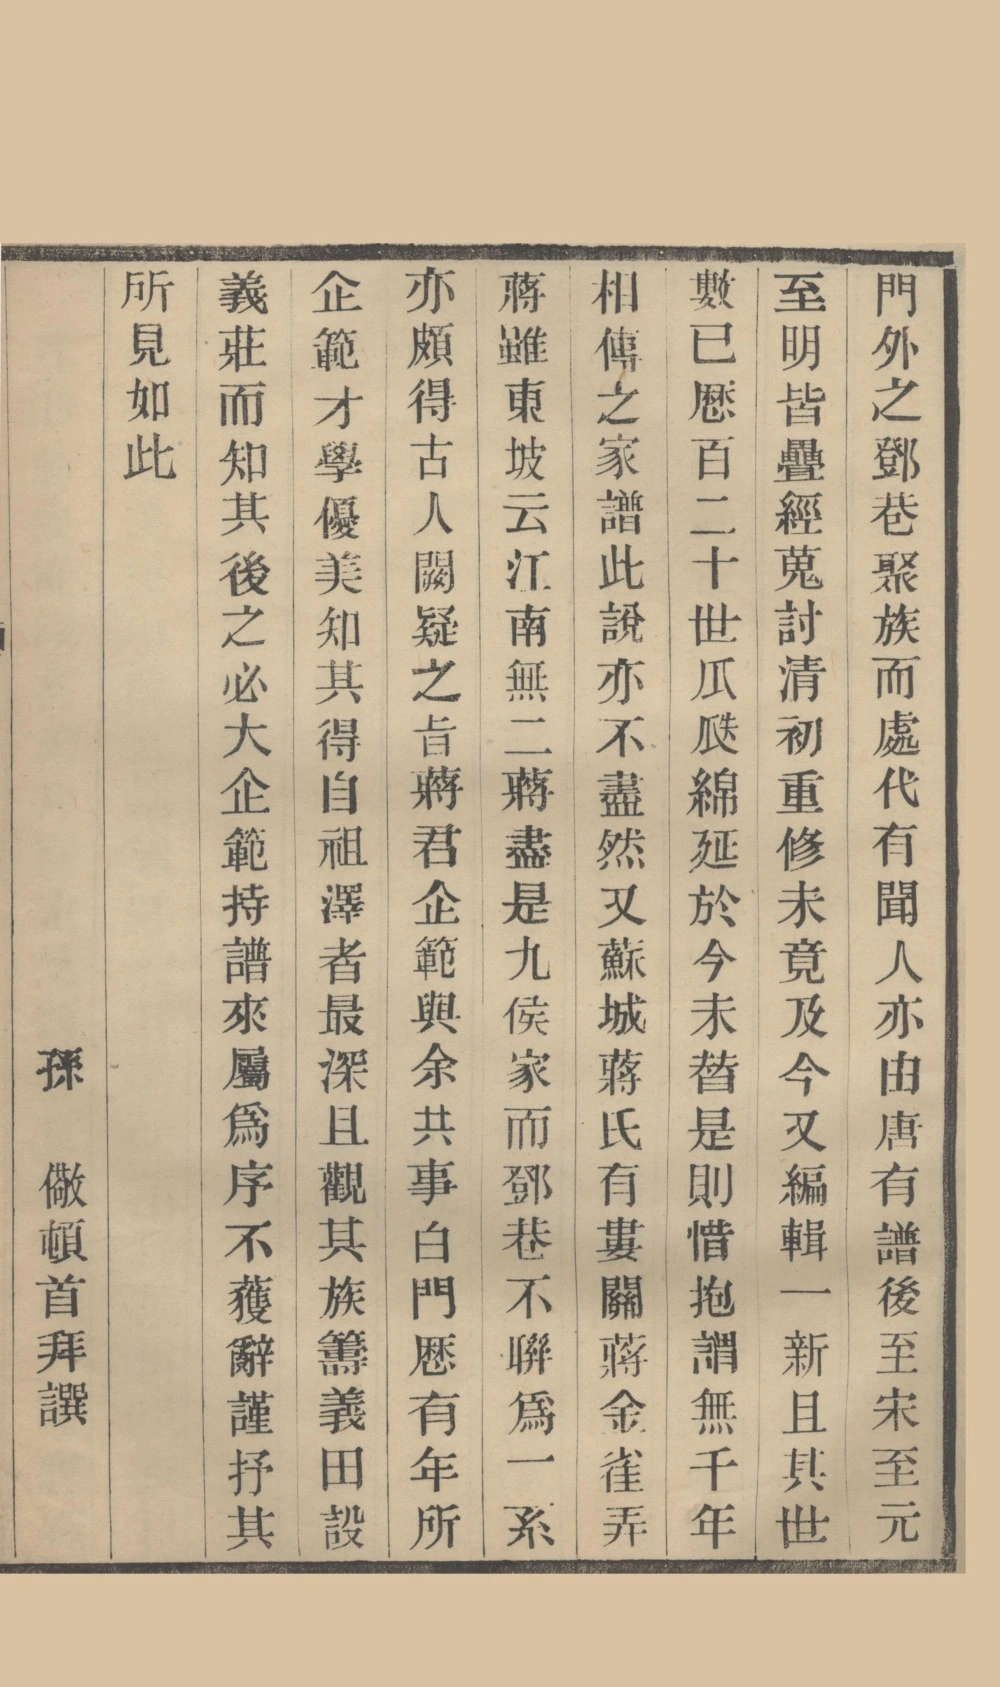 門外之鄧巷聚族而處代有聞人亦由唐有譜後至宋至元
至明皆疊經蒐討清初重修未竟及今又編輯一新且其世
數已歷百二十世瓜瓞綿延於今未替是則惜抱謂無千年
相傳之家譜此說亦不盡然又蘇城蔣氏有婁關蔣金雀弄
蔣雖東坡云江南無二蔣盡是九侯家而鄧巷不聯爲一系
亦頗得古人闕疑之旨蔣君企範與余共事白門歷有年所
企範才學優美知其得自祖澤者最深且觀其族籌義田設
義莊而知其後之必大企範持譜來屬爲序不獲辭謹抒其
所見如此
孫 儆頓首拜譔